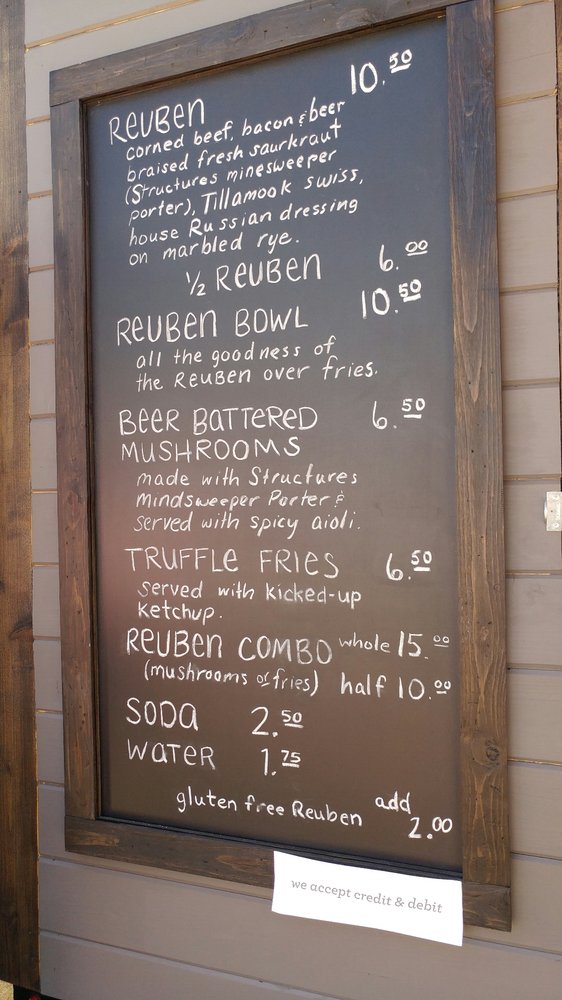 REUBEN 10.50
corned beef, bacon & beer
braised fresh saurkraut
(Structures minesweeper
porter), Tillamook swiss,
house Russian dressing
on marbled rye.
1/2 REUBEN 6.00
REUBEN BOWL 10.50
all the goodness of
the REUBEN over fries.
BEER BATTERED 6.50
MUSHROOMS
made with Structures
Mindsweeper Porter &
served with spicy aioli.
TRUFFLE FRIES 6.50
served with kicked-up
ketchup.
REUBEN COMBO whole 15.00
(mushrooms or fries) half 10.00
SODA 2.50
WATER 1.75
gluten free Reuben add
2.00
we accept credit & debit